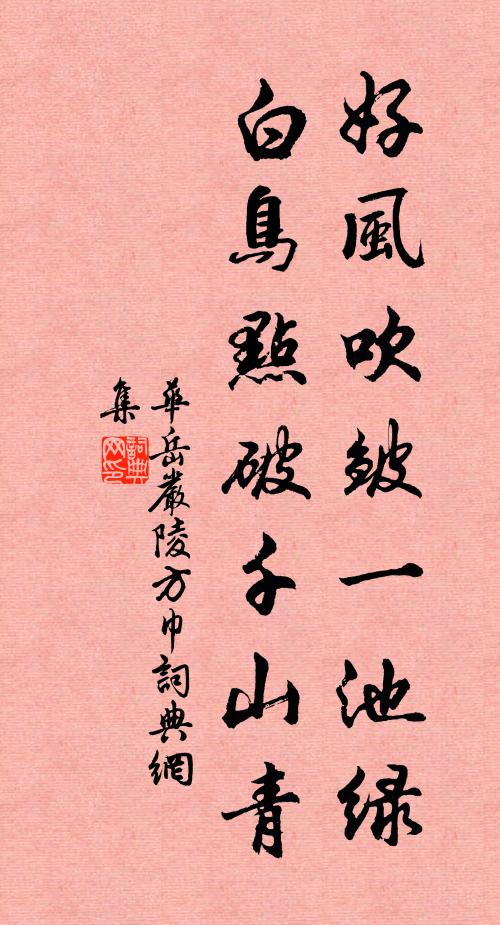 好風吹皺一池綠
白鳥點破千山青
華岳嚴陵方巾詞典網
集
詞典網印